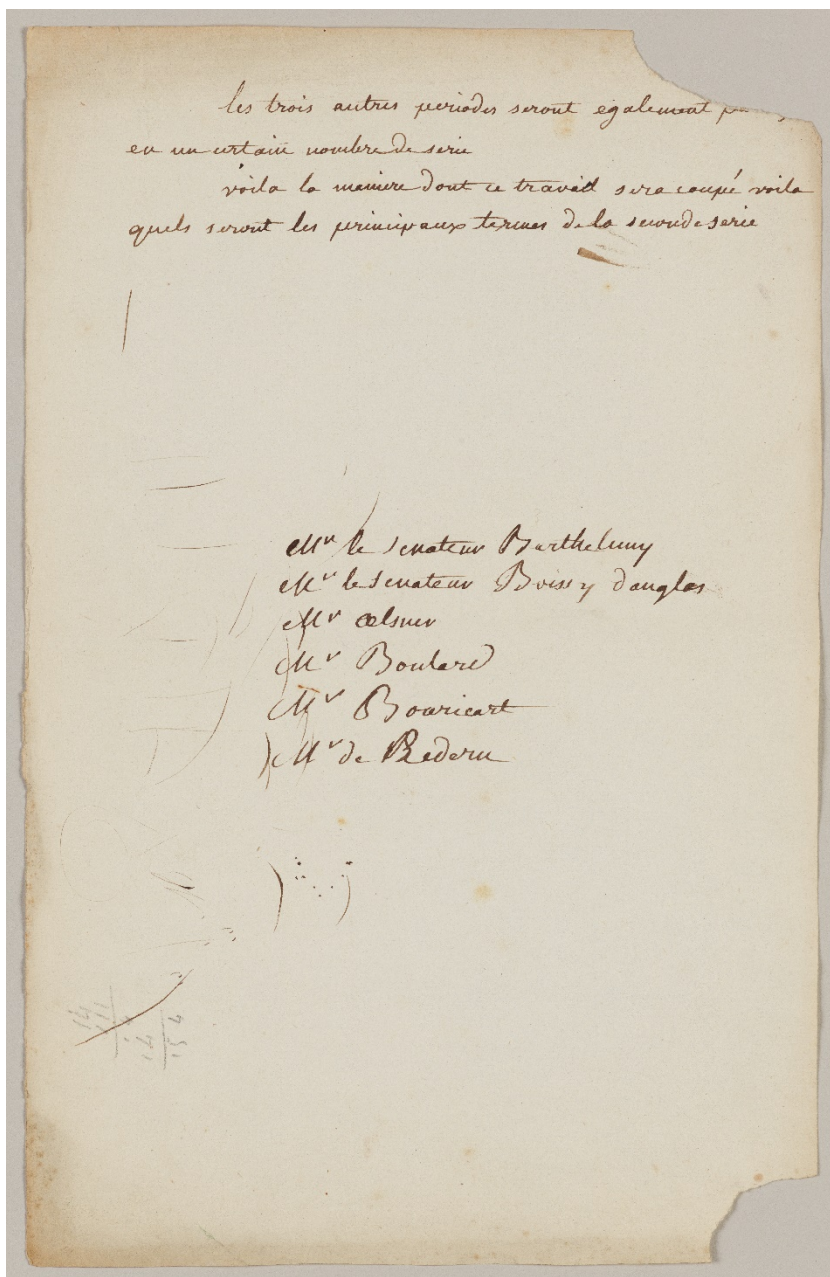 les trois autres periodes seront egalement
en un certain nombre de serie
voila la maniere dont ce travail sera coupé voila
quels seront les principaux termes de la seconde serie
Mr le senateur Barthelemy
Mr le senateur Boissy d'anglas
Mr oelsner
Mr Boulard
Mr Bouricart
Mr de Redern